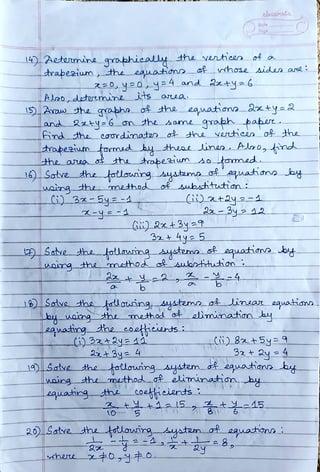 classmate
Date
Page
14) Determine graphically the vertices of a
trapezium, the equations of whose sides are:
x=0, y=0, y=4 and 2x+y=6
Also, determine its area.
15) Draw the graphs of the equations 2x+y=2
and 2x+y=6 on the same graph paper.
Find the coordinates of the vertices of the
trapezium formed by these lines. Also, find
the area of the trapezium so formed.
16) Solve the following systems of equations by
using the method of substitution:
(i) 3x-5y=-1 (ii) x+2y=-1
x-y=-1 2x-3y=12
(iii) 2x+3y=9
3x+4y=5
17) Solve the following systems of equations by
using the method of substitution:
2x/a + y/b = 2, x/a - y/b = 4
18) Solve the following systems of linear equations
by using the method of elimination by
equating the coefficients:
(i) 3x+2y=11 (ii) 8x+5y=9
2x+3y=4 3x+2y=4
19) Solve the following system of equations by
using the method of elimination by
equating the coefficients:
x/10 + y/5 + 1 = 15, x/8 + y/6 = 15
20) Solve the following system of equations:
1/2x - 1/y = -1, 1/x + 1/2y = 8,
where x≠0, y≠0.